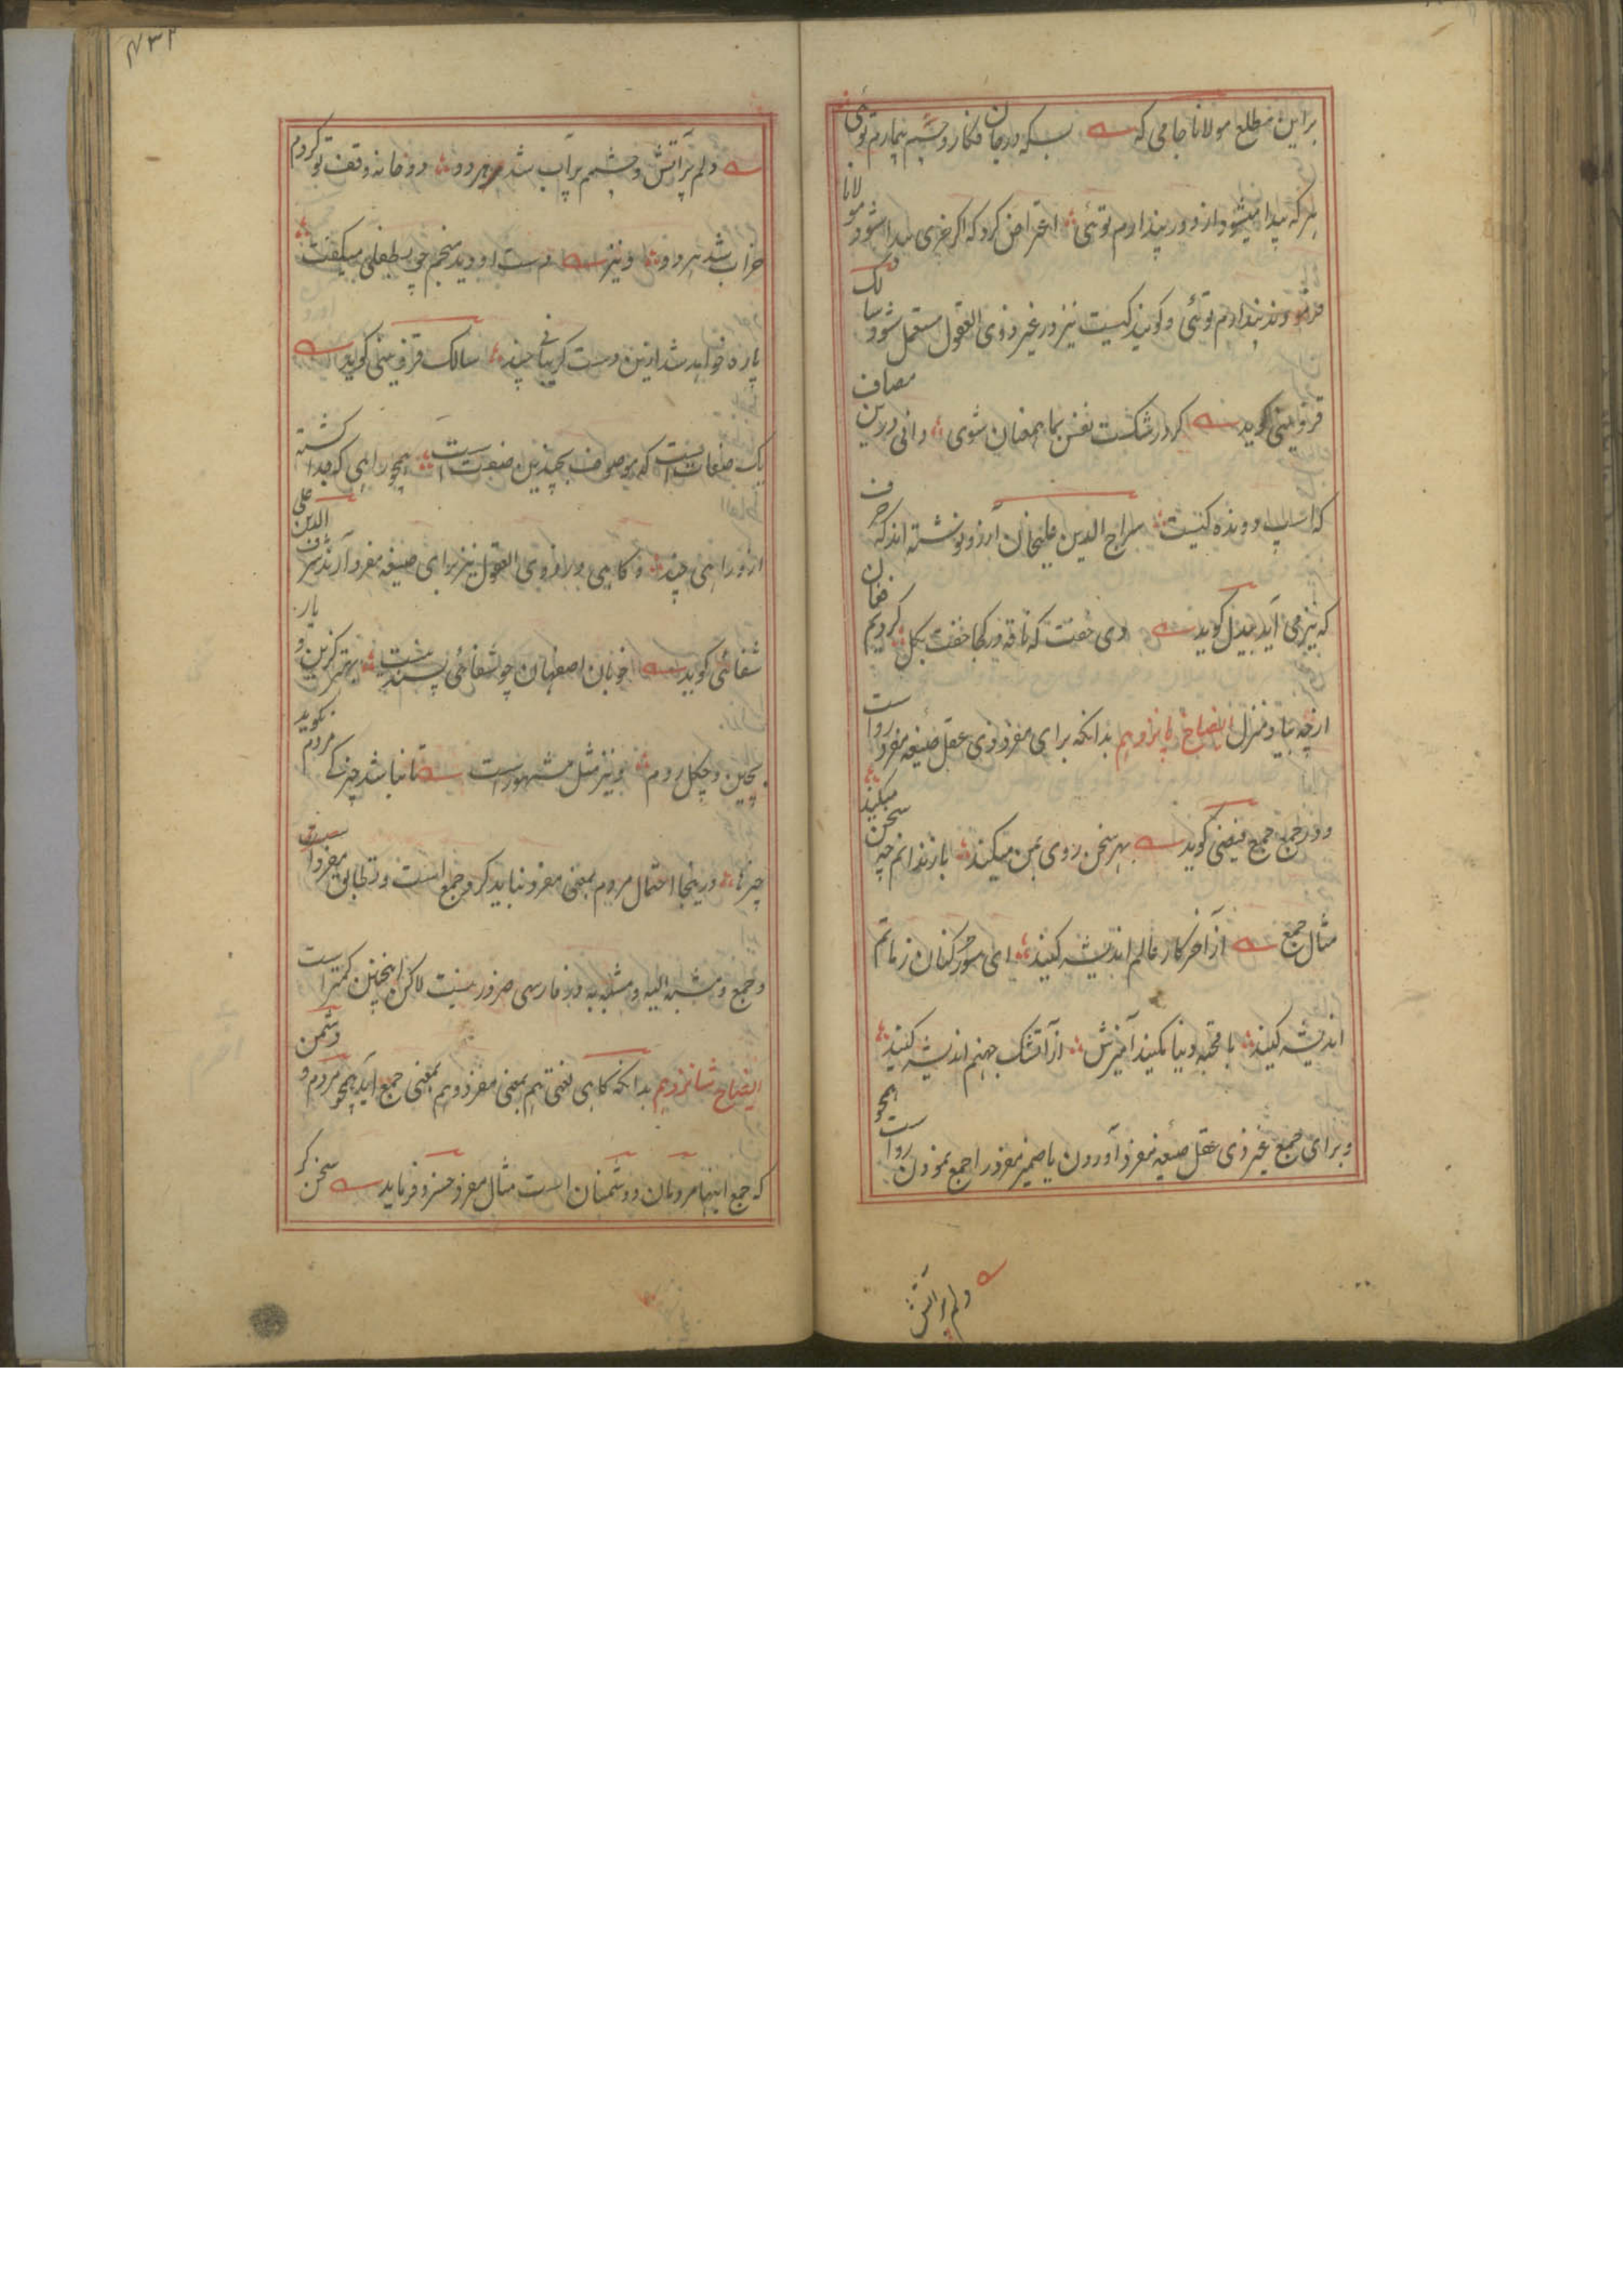 بر این مطلع مولانا جامی که بسکه در جان فکار و چشم بیمارم توئی
هر که پیدا میشود از دور پندارم توئی اعتراض کرد که اگر خری پیدا شود مولانا
فرمودند پندارم توئی و گویند کیست نیز در غیر ذوی العقول مستعمل شود سالک
قزوینی گوید گر در شکست نفس بما همعنان شوی دانی درین مصاف
که اسپ دونده کیست سراج الدین علیخان آرزو نوشته اند که حرف
که نیز می آید بیدل گوید دی خفت که ناقه در کجا خفت بگل کردیم فغان
از چه بیاد منزل ایضاح پانزدهم بدانکه برای مفرد ذوی عقل صیغه مفرد رواست
و در جمع جمع فیضی گوید بهر سخن روی بمن میکند باز ندانم چه سخن میکند
مثال جمع از آخر کار عالم اندیشه کنید ای سور کنان ز ماتم
اندیشه کنید با قحبه دنیا مکنید آمیزش از آتشک جهنم اندیشه کنید
و برای جمع غیر ذی عقل صیغه مفرد آوردن یا ضمیر مفرد راجع نمودن رواست همچو
دلم پر آتش
۷۳۲
دلم پر آتش و چشمم پر آب شد هر دو دو خانه وقف تو کردم
خراب شد هر دو و نیز دست او دید منجم چو بطفلی میگفت
پاره خواهد شد ازین دست گریبانی چند سالک قزوینی گوید
یک صنعات است که موصوف بچندین صنعت است همچو راهی که جدا گشته
ازو راهی چند و گاهی در ذوی العقول نیز برای صیغه مفرد آرند شرف الدین علی
شفائی گوید خوبان اصفهان چو شفائی پسند نیست بهتر گزین و یار
بچین و چگل رویم و نیز مثل مشهور است تا نباشد چیزکے مردم نگوید
چیزها درینجا احتمال مردم بمعنی مفرد نباید کرد جمع است و تطابق مفرد است
و جمع و مشبه الیه و مشبه به در فارسی ضرور نیست لاکن اینچنین کمتر است
ایضاح شانزدهم بدانکه گاهی لفظی هم بمعنی مفرد و هم بمعنی جمع آید همچو مردم و دشمن
که جمع اینها مردمان و دشمنان است مثال مفرد خسرو فرماید سخن کر